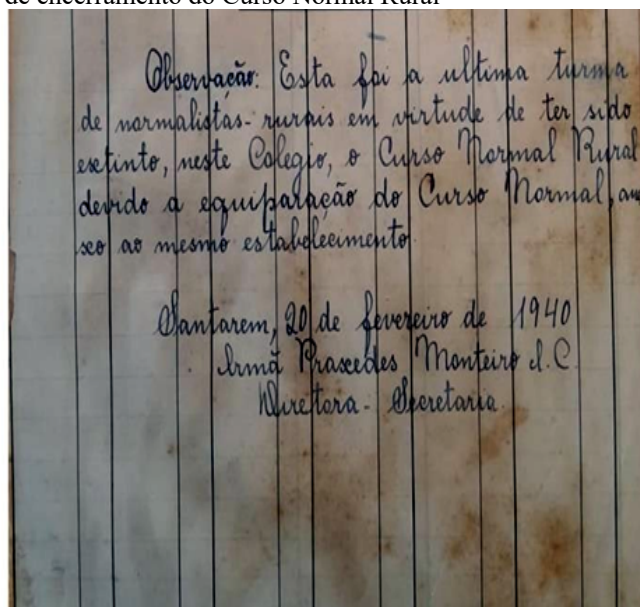 de encerramento do Curso Normal Rural
Observação: Esta foi a ultima turma
de normalistas-rurais em virtude de ter sido
extinto, neste Colegio, o Curso Normal Rural
devido a equiparação do Curso Normal, ane
xo ao mesmo estabelecimento
Santarem, 20 de fevereiro de 1940
Irmã Praxedes Monteiro I.C.
Diretora - Secretaria.